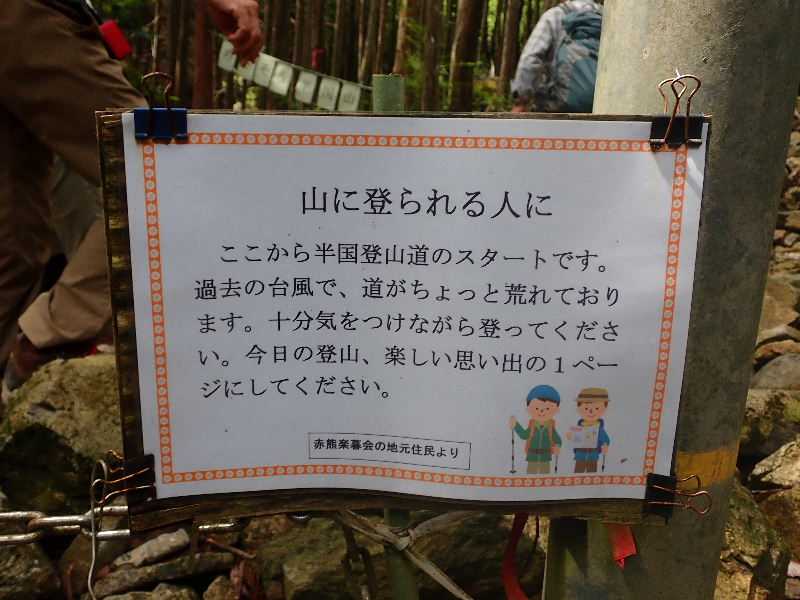 山に登られる人に
ここから半国登山道のスタートです。
過去の台風で、道がちょっと荒れており
ます。十分気をつけながら登ってくださ
い。今日の登山、楽しい思い出の１ペー
ジにしてください。
赤熊楽暮会の地元住民より